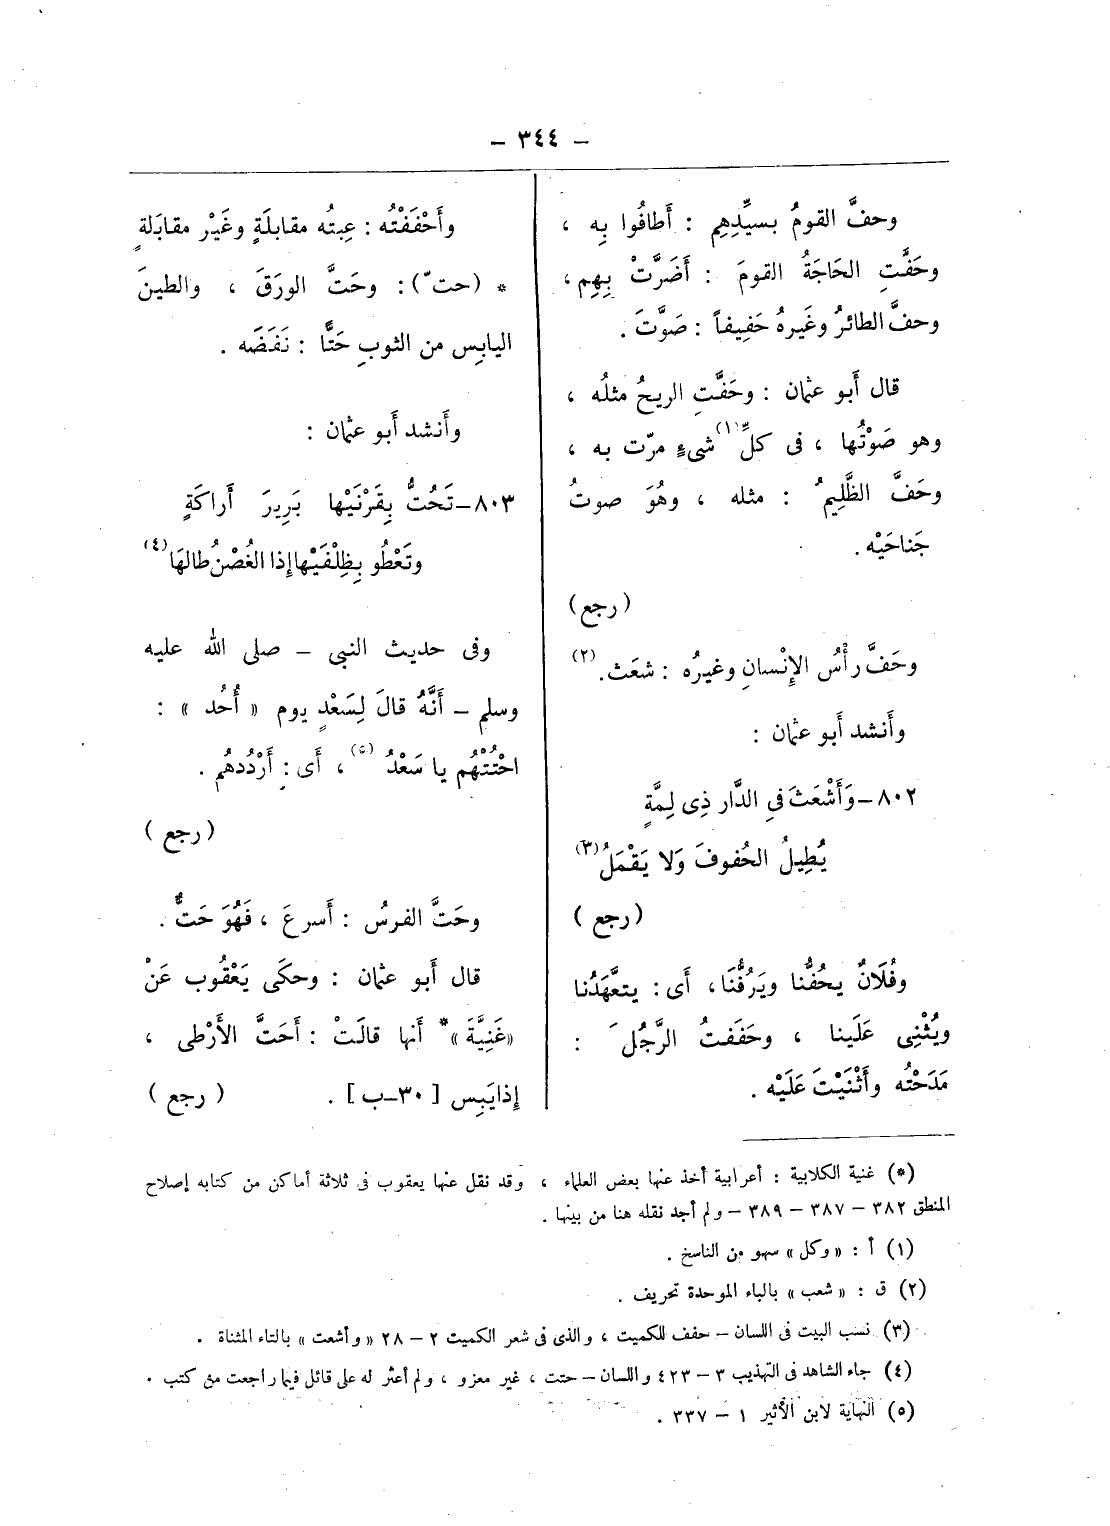 – ٣٤٤ –
وحفَّ القومُ بسيِّدِهِم : أَطافُوا بِه ،
وحَفَّتِ الحَاجَةُ القومَ : أَضَرَّتْ بِهِم،
وحفَّ الطائرُ وغَيرهُ حَفِيفاً : صَوَّتَ .
قال أَبو عثمان : وحَفَّتِ الريحُ مثلُه ،
وهو صَوْتُها ، فى كلِّ (١) شىءٍ مرّت به ،
وحَفَّ الظَّلِيمُ : مثله ، وهُوَ صوتُ
جَناحَيْه .
(رجع)
وحَفَّ رأْسُ الإِنْسانِ وغيرُه : شعَث. (٢)
وأَنشد أَبو عثمان :
٨٠٢–وَأَشْعَثَ فىِ الدَّار ذِى لِمَّةٍ
يُطِيلُ الحُفوفَ وَلا يَقْمَلُ (٣)
(رجع )
وفُلَانٌ يحُفُّنا ويَرُفُّنَا، أَى : يتعَّهَدُنا
ويُثْنِى عَلَينا ، وحَفَفتُ الرَّجُلَ :
مَدَحْتُه وأَثْنَيْتَ عَلَيْه .
وأَحْفَفْتُه : عِبتُه مقابلَةٍ وغَيْر مقابَلةٍ
* (حتّ): وحَتَّ الورَقَ ، والطينَ
اليابِس من الثوبِ حَتًّا : نَفَضَه .
وأَنشد أَبو عثمان :
٨٠٣–تَحُتُّ بِقَرْنَيْها بَرِيرَ أَراكَةٍ
وتَعْطُو بِظِلْفَيْها إِذا الغُصْنُ طالهَا (٤)
وفى حديث النبى – صلى الله عليه
وسلم – أَنَّهُ قالَ لِسَعْدٍ يوم « أُحُد » :
احْتُتْهُم يا سَعْدُ (٥) ، أَى : أَرْدُدهُم .
( رجع )
وحَتَّ الفرسُ : أَسرعَ ، فَهُوَ حَتٌّ .
قال أَبو عثمان : وحكَى يَعْقُوب عَنْ
«غَنِيَّةَ»* أَنها قالَتْ : أَحَتَّ الأَرْطى ،
إِذا يَبِس [ ٣٠–ب ] . ( رجع )
(*) غنية الكلابية : أعرابية أخذ عنها بعض العلماء ، وقد نقل عنها يعقوب فى ثلاثة أماكن من كتابه إصلاح
المنطق ٣٨٢ – ٣٨٧ – ٣٨٩ – ولم أجد نقله هنا من بينها .
(١) أ : « وكل » سهو من الناسخ .
(٢) ق : « شعب » بالباء الموحدة تحريف .
(٣) نسب البيت فى اللسان – حفف للكميت ، والذى فى شعر الكميت ٢ – ٢٨ « وأشعت » بالتاء المثناة .
(٤) جاء الشاهد فى التهذيب ٣ – ٤٢٣ واللسان – حتت ، غير معزو ، ولم أعثر له على قائل فيما راجعت من كتب .
(٥) النهاية لابن الأثير ١ – ٣٣٧ .